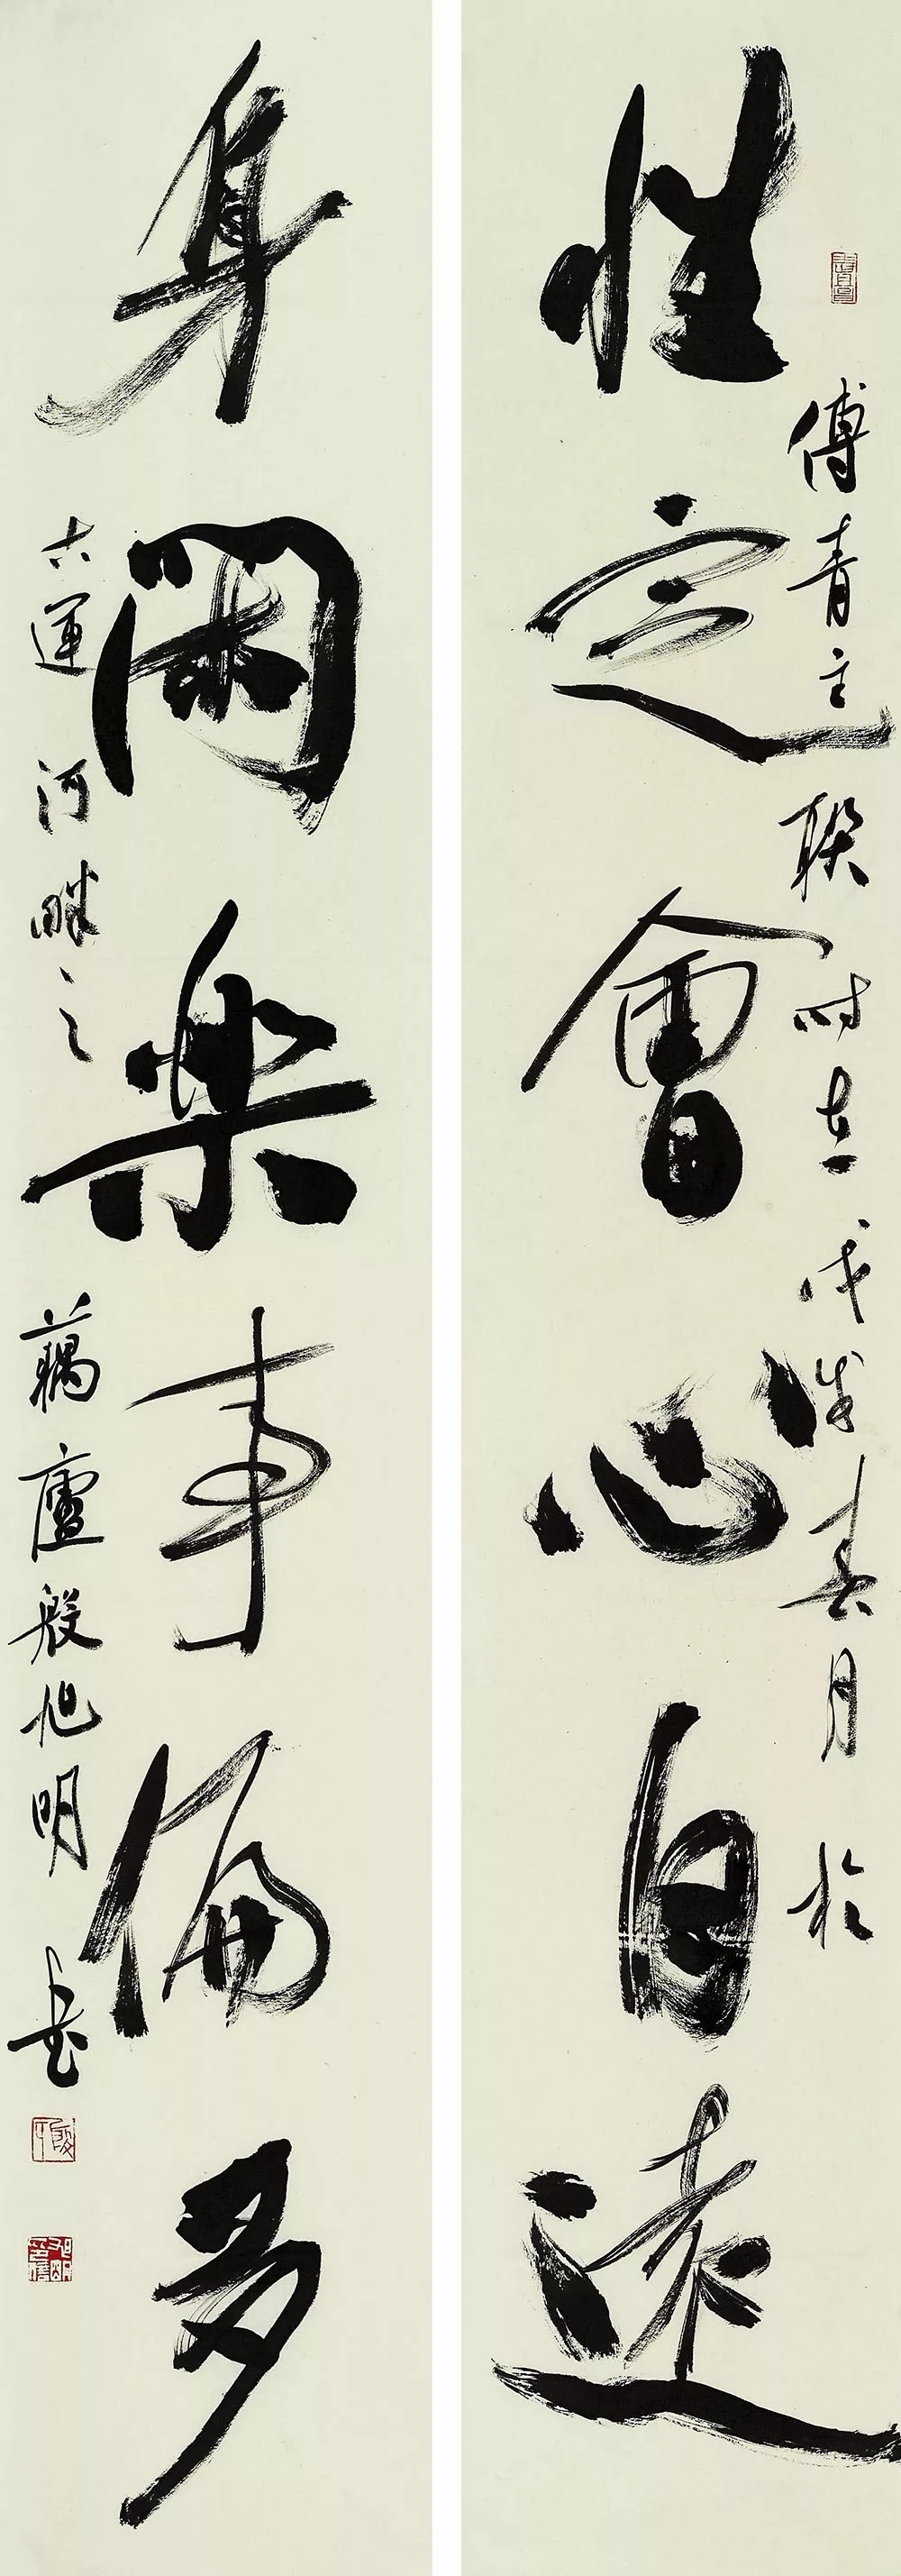 性定會心自遠
傅青主聯時在戊戌春月於
身閑樂事偏多
古運河畔之
藕廬殷旭明書